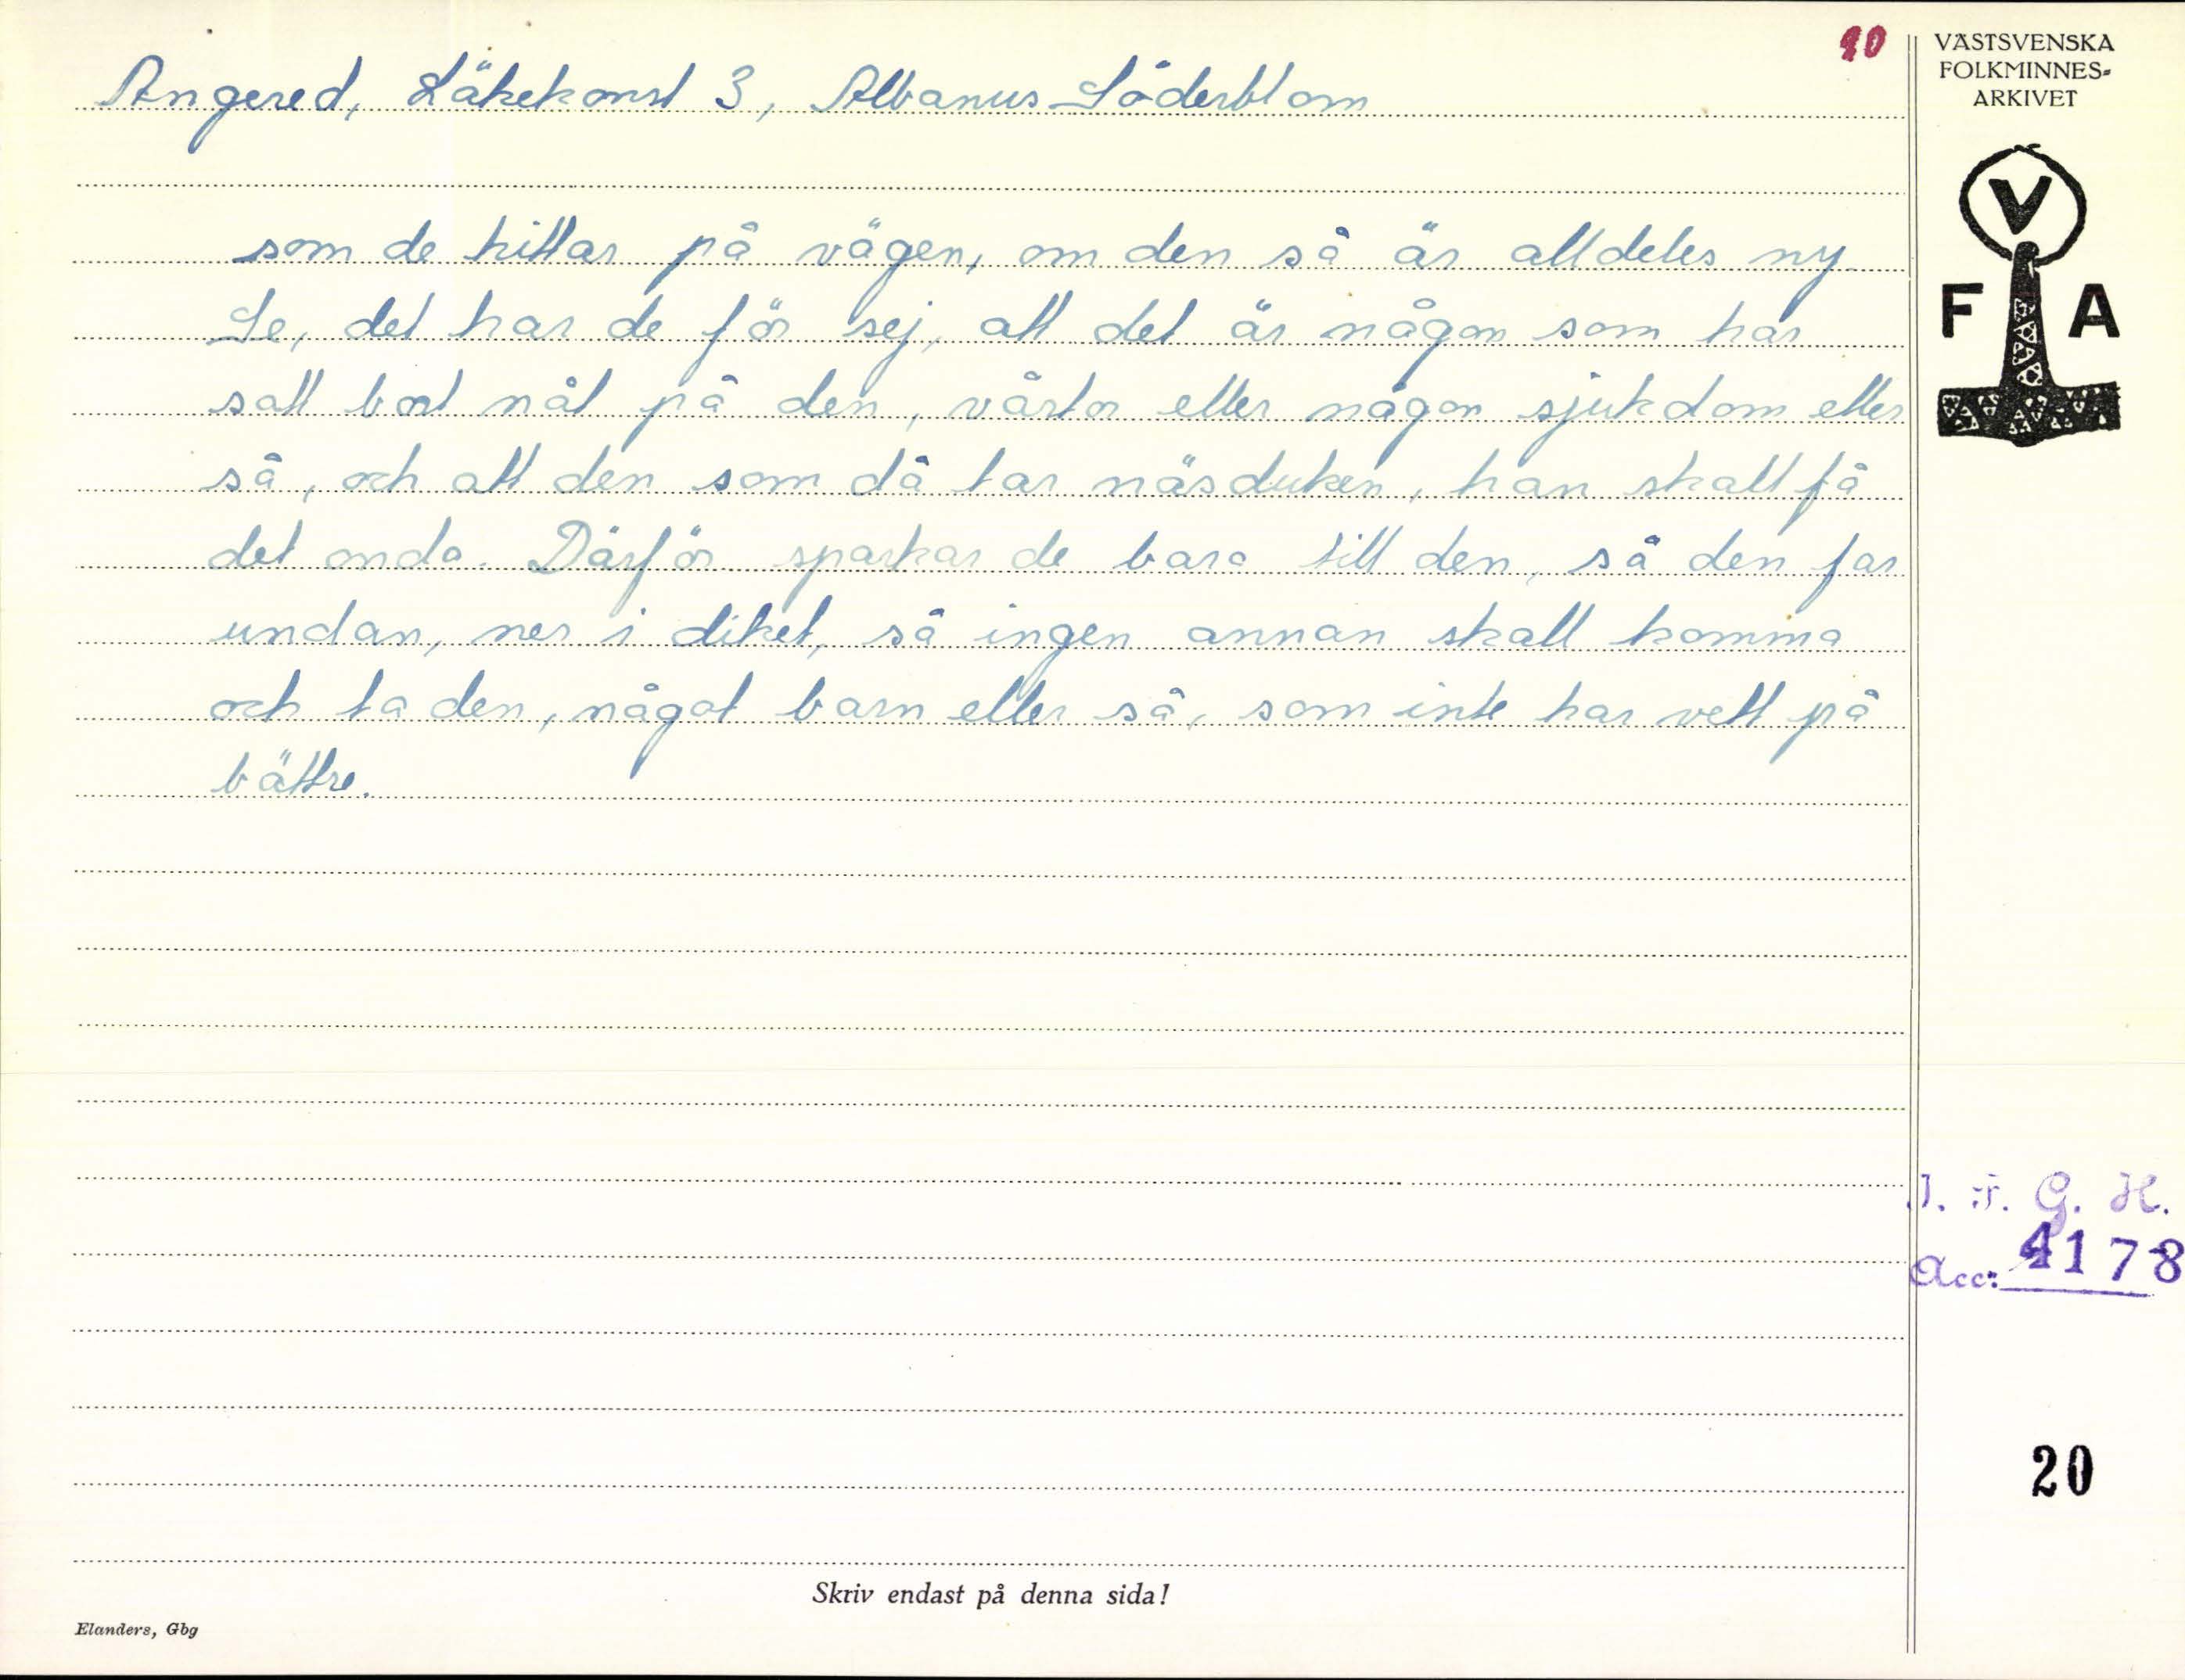 Angered, Läkekonst 3, Albanus Söderblom
som de hittar på vägen, om den så är alldeles ny.
Se, det har de för sej, att det är någon som har
satt bort nåt på den, vårtor eller någon sjukdom eller
så, och att den som då tar näsduken, han skall få
det onda. Därför sparkar de bara till den, så den far
undan, ner i diket, så ingen annan skall komma
och ta den, något barn eller så, som inte har vett på
bättre.
Skriv endast på denna sida!
Elanders, Gbg
VÄSTSVENSKA
FOLKMINNES-
ARKIVET
V
F A
I. F. G. H.
Acc: 4178
20